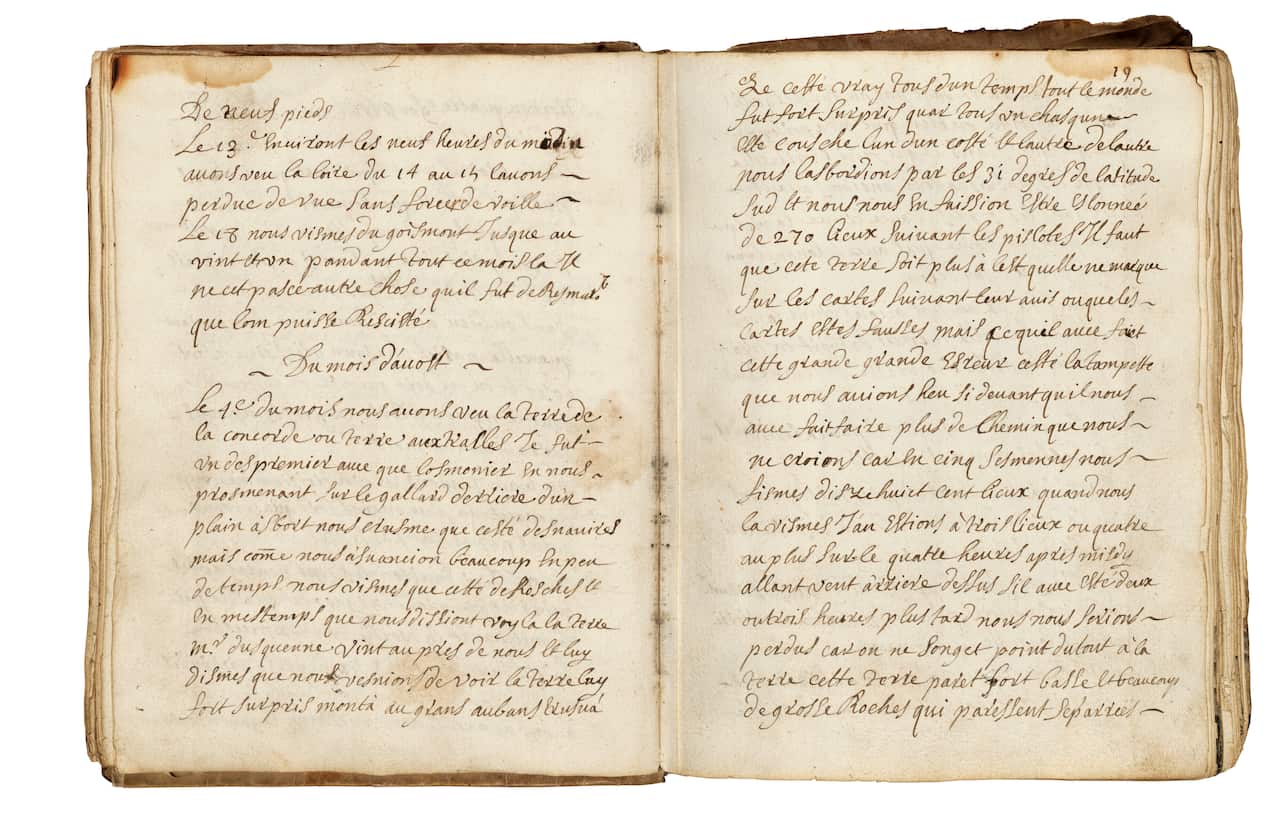 De neuf pieds
Le 13.e Environt les neuf heures du matin
auons veu la loire du 14 au 15 lauons
perdue de vue sans forcer de voille
Le 18 nous vismes du goismont Jusque au
vint et vn pandant tout ce mois la Il
ne cet pasce autre chose quil fut de
que lom puisse Resciste
Du mois d'auost
Le 4.e du mois nous auons veu la terre de
la concorde ou terre auxtralles Je fut
vn des premier auec que losmonier En nous
prosmenant sur le gallard derriere dun
plain àsbort nous crusme que cesté des nauires
mais come nous àsuancion beaucoup En peu
de temps nous vismes que cetté des Resches et
En mestemps que nous dissiont voyla la terre
mr dusquenne vint au pres de nous et luy
dismes que nous vesnions de voir la terre luy
fort surpris monta au grans aubans
19
Ce cesté vray tous dun temps tout le monde
fut fort surpris quar tous vn chasqun
Este cousche lun dun costé et lautre de lautre
nous lasbordions par les 31 degres de latitude
sud Et nous nous En faission Estre Eslonnee
de 270 lieux suiuant les pislotes Il faut
que cete terre soit plus à lest quelle ne marque
sur les cartes suiuant leur auis ou que les
cartes Estes fausses mais ce quil auee fait
cette grande grande Esreur cesté la tampette
que nous auions heu si deuant quil nous
auee fait faire plus de Chemin que nous
ne croions car En cinq sesmennes nous
fismes disze huict cent lieux quand nous
la vismes J'an Estions à trois lieux ou quatre
au plus sur le quatre heures apres midy
allant vent àrriere dessus sil auee Esté deux
ou trois heures plus tard nous nous serions
perdus car on ne songet point du tout à la
terre cette terre paret fort basse Et beaucoup
de grosse Roches qui paressent separrées